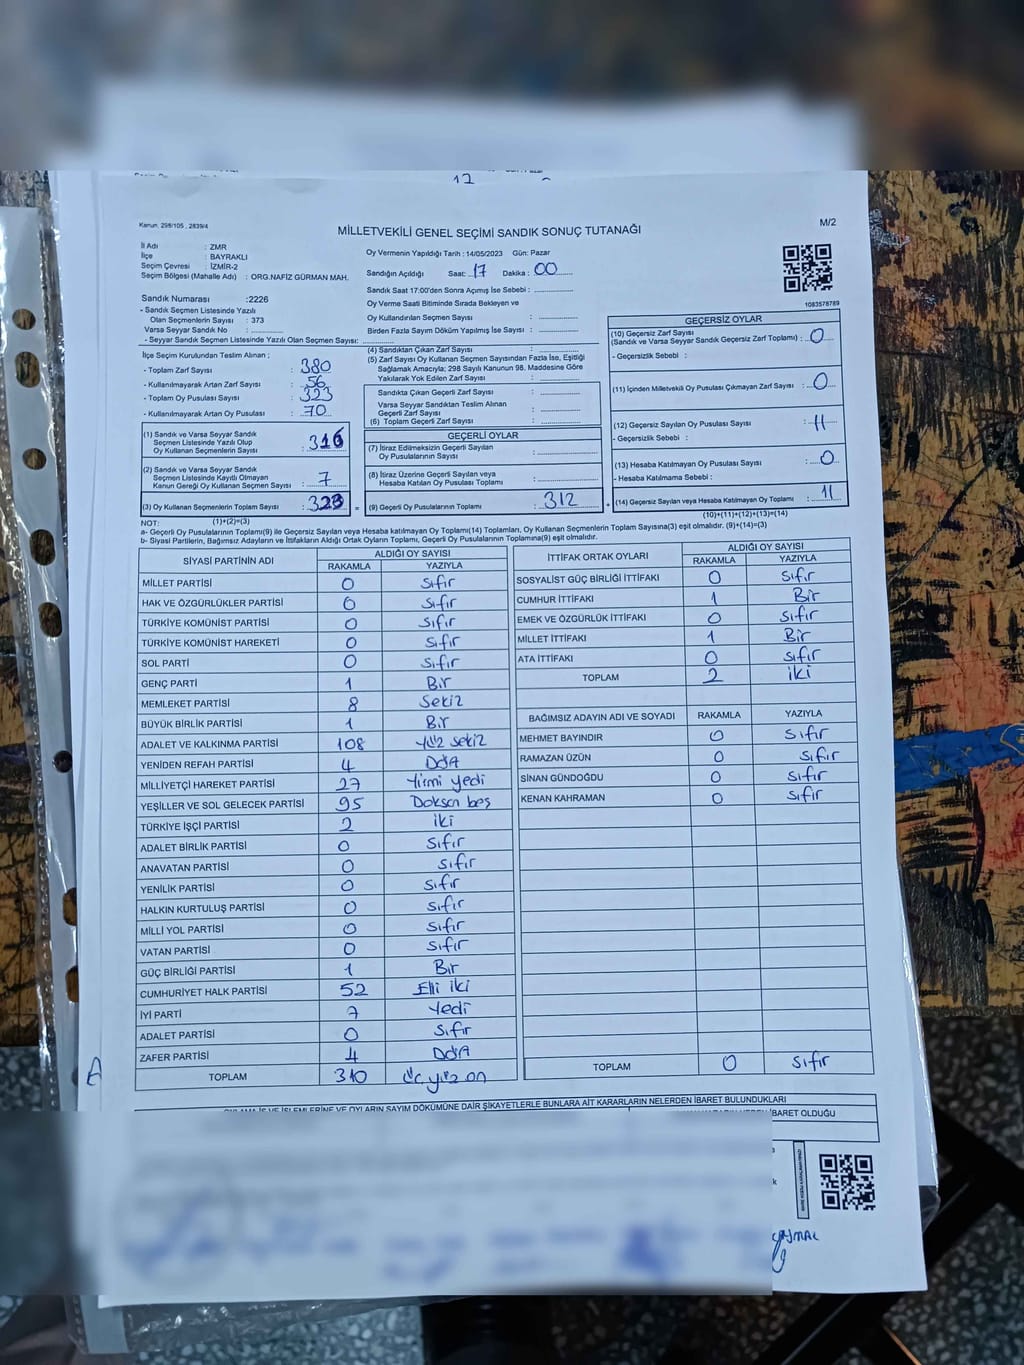 12
Kanun: 298/105 , 2839/4
MİLLETVEKİLİ GENEL SEÇİMİ SANDIK SONUÇ TUTANAĞI
M/2
İl Adı : ZMR
İlçe : BAYRAKLI
Seçim Çevresi : İZMİR-2
Seçim Bölgesi (Mahalle Adı) : ORG.NAFİZ GÜRMAN MAH.
Oy Vermenin Yapıldığı Tarih : 14/05/2023 Gün: Pazar
Sandığın Açıldığı Saat: 17 Dakika : 00
Sandık Saat 17:00'den Sonra Açımış İse Sebebi :
Oy Verme Saati Bitiminde Sırada Bekleyen ve
Oy Kullandırılan Seçmen Sayısı :
Birden Fazla Sayım Döküm Yapılmış İse Sayısı :
1083578789
Sandık Numarası :2226
- Sandık Seçmen Listesinde Yazılı
Olan Seçmenlerin Sayısı : 373
Varsa Seyyar Sandık No :
- Seyyar Sandık Seçmen Listesinde Yazılı Olan Seçmen Sayısı:
İlçe Seçim Kurulundan Teslim Alınan ;
- Toplam Zarf Sayısı : 380
- Kullanılmayarak Artan Zarf Sayısı : 56
- Toplam Oy Pusulası Sayısı : 323
- Kullanılmayarak Artan Oy Pusulası : 70
(1) Sandık ve Varsa Seyyar Sandık
Seçmen Listesinde Yazılı Olup
Oy Kullanan Seçmenlerin Sayısı : 316
(2) Sandık ve Varsa Seyyar Sandık
Seçmen Listesinde Kayıtlı Olmayan
Kanun Gereği Oy Kullanan Seçmen Sayısı : 7
(3) Oy Kullanan Seçmenlerin Toplam Sayısı : 323
(1)+(2)=(3)
(4) Sandıktan Çıkan Zarf Sayısı :
(5) Zarf Sayısı Oy Kullanan Seçmen Sayısından Fazla İse, Eşitliği
Sağlamak Amacıyla; 298 Sayılı Kanunun 98. Maddesine Göre
Yakılarak Yok Edilen Zarf Sayısı :
Sandıkta Çıkan Geçerli Zarf Sayısı :
Varsa Seyyar Sandıktan Teslim Alınan
Geçerli Zarf Sayısı :
(6) Toplam Geçerli Zarf Sayısı :
GEÇERLİ OYLAR
(7) İtiraz Edilmeksizin Geçerli Sayılan
Oy Pusulalarının Sayısı :
(8) İtiraz Üzerine Geçerli Sayılan veya
Hesaba Katılan Oy Pusulaları Toplamı :
= (9) Geçerli Oy Pusulalarının Toplamı : 312
GEÇERSİZ OYLAR
(10) Geçersiz Zarf Sayısı
(Sandık ve Varsa Seyyar Sandık Geçersiz Zarf Toplamı) : 0
- Geçersizlik Sebebi :
(11) İçinden Milletvekili Oy Pusulası Çıkmayan Zarf Sayısı : 0
(12) Geçersiz Sayılan Oy Pusulası Sayısı : 11
- Geçersizlik Sebebi :
(13) Hesaba Katılmayan Oy Pusulası Sayısı : 0
- Hesaba Katılmama Sebebi :
+ (14) Geçersiz Sayılan veya Hesaba Katılmayan Oy Toplamı : 11
(10)+(11)+(12)+(13)=(14)
NOT:
a- Geçerli Oy Pusulalarının Toplamı(9) ile Geçersiz Sayılan veya Hesaba katılmayan Oy Toplamı(14) Toplamları, Oy Kullanan Seçmenlerin Toplam Sayısına(3) eşit olmalıdır. (9)+(14)=(3)
b- Siyasi Partilerin, Bağımsız Adayların ve İttifakların Aldığı Ortak Oyların Toplamı, Geçerli Oy Pusulalarının Toplamına(9) eşit olmalıdır.
SİYASİ PARTİNİN ADI ALDIĞI OY SAYISI
RAKAMLA YAZIYLA
MİLLET PARTİSİ 0 Sıfır
HAK VE ÖZGÜRLÜKLER PARTİSİ 0 Sıfır
TÜRKİYE KOMÜNİST PARTİSİ 0 Sıfır
TÜRKİYE KOMÜNİST HAREKETİ 0 Sıfır
SOL PARTİ 0 Sıfır
GENÇ PARTİ 1 Bir
MEMLEKET PARTİSİ 8 Sekiz
BÜYÜK BİRLİK PARTİSİ 1 Bir
ADALET VE KALKINMA PARTİSİ 108 Yüz Sekiz
YENİDEN REFAH PARTİSİ 4 Dört
MİLLİYETÇİ HAREKET PARTİSİ 27 Yirmi yedi
YEŞİLLER VE SOL GELECEK PARTİSİ 95 Doksan beş
TÜRKİYE İŞÇİ PARTİSİ 2 iki
ADALET BİRLİK PARTİSİ 0 Sıfır
ANAVATAN PARTİSİ 0 sıfır
YENİLİK PARTİSİ 0 Sıfır
HALKIN KURTULUŞ PARTİSİ 0 Sıfır
MİLLİ YOL PARTİSİ 0 Sıfır
VATAN PARTİSİ 0 Sıfır
GÜÇ BİRLİĞİ PARTİSİ 1 Bir
CUMHURİYET HALK PARTİSİ 52 Elli iki
İYİ PARTİ 7 Yedi
ADALET PARTİSİ 0 Sıfır
ZAFER PARTİSİ 4 Dört
TOPLAM 310 üç yüz on
İTTİFAK ORTAK OYLARI ALDIĞI OY SAYISI
RAKAMLA YAZIYLA
SOSYALİST GÜÇ BİRLİĞİ İTTİFAKI 0 Sıfır
CUMHUR İTTİFAKI 1 Bir
EMEK VE ÖZGÜRLÜK İTTİFAKI 0 Sıfır
MİLLET İTTİFAKI 1 Bir
ATA İTTİFAKI 0 Sıfır
TOPLAM 2 iki
BAĞIMSIZ ADAYIN ADI VE SOYADI RAKAMLA YAZIYLA
MEHMET BAYINDIR 0 Sıfır
RAMAZAN ÜZÜN 0 Sıfır
SİNAN GÜNDOĞDU 0 Sıfır
KENAN KAHRAMAN 0 Sıfır
TOPLAM 0 Sıfır
OYLAMA İŞ VE İŞLEMLERİNE VE OYLARIN SAYIM DÖKÜMÜNE DAİR ŞİKAYETLERLE BUNLARA AİT KARARLARIN NELERDEN İBARET BULUNDUKLARI
İBARET OLDUĞU